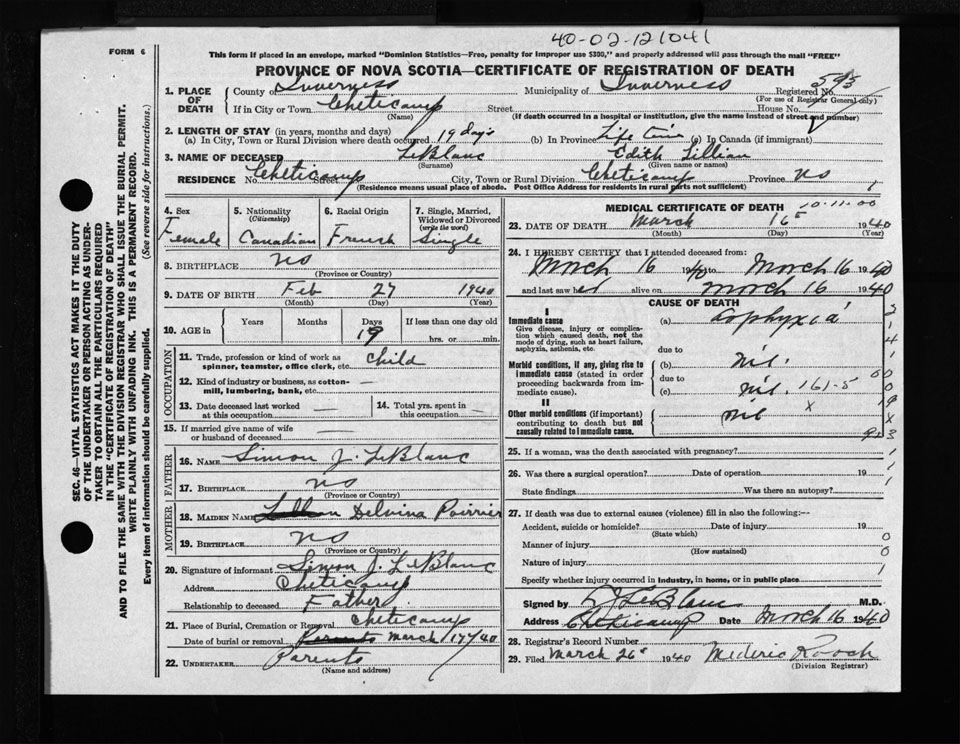 40-02-121041
FORM 6
This form if placed in an envelope, marked "Dominion Statistics—Free, penalty for improper use $300," and properly addressed will pass through the mail "FREE"
PROVINCE OF NOVA SCOTIA—CERTIFICATE OF REGISTRATION OF DEATH
1. PLACE OF DEATH County of Inverness Municipality of Inverness Registered No. 593
(For use of Registrar General only)
If in City or Town Cheticamp Street House No.
(Name) (If death occurred in a hospital or institution, give the name instead of street and number)
2. LENGTH OF STAY (in years, months and days)
(a) In City, Town or Rural Division where death occurred 19 days (b) In Province Life time (c) In Canada (if immigrant)
3. NAME OF DECEASED LeBlanc Edith Lillian
(Surname) (Given name or names)
RESIDENCE No. Cheticamp Street City, Town or Rural Division Cheticamp Province NS
(Residence means usual place of abode. Post Office Address for residents in rural parts not sufficient)
4. Sex Female
5. Nationality (Citizenship) Canadian
6. Racial Origin French
7. Single, Married, Widowed or Divorced (write the word) Single
8. BIRTHPLACE NS
(Province or Country)
9. DATE OF BIRTH Feb 27 1940
(Month) (Day) (Year)
10. AGE in Years Months Days 19 If less than one day old hrs. or min.
OCCUPATION
11. Trade, profession or kind of work as spinner, teamster, office clerk, etc. Child
12. Kind of industry or business, as cotton-mill, lumbering, bank, etc. —
13. Date deceased last worked at this occupation —
14. Total yrs. spent in this occupation —
15. If married give name of wife or husband of deceased —
FATHER
16. NAME Simon J. LeBlanc
17. BIRTHPLACE NS
(Province or Country)
MOTHER
18. MAIDEN NAME Lillian Delvina Poirrier
19. BIRTHPLACE NS
(Province or Country)
20. Signature of informant Simon J. LeBlanc
Address Cheticamp
Relationship to deceased Father
21. Place of Burial, Cremation or Removal Cheticamp
Date of burial or removal Parents March 17/40
22. UNDERTAKER Parents
(Name and address)
MEDICAL CERTIFICATE OF DEATH 10-11-00
23. DATE OF DEATH March 16 1940
(Month) (Day) (Year)
24. I HEREBY CERTIFY that I attended deceased from:
March 16 1940 to March 16 1940
and last saw her alive on March 16 1940
CAUSE OF DEATH
I
Immediate cause (a) Asphyxia
Give disease, injury or complication which caused death, not the mode of dying, such as heart failure, asphyxia, asthenia, etc.
due to
Morbid conditions, if any, giving rise to immediate cause (stated in order proceeding backwards from immediate cause).
(b) Nil.
due to
(c) Nil. 161-5
II
Other morbid conditions (if important) contributing to death but not causally related to immediate cause. Nil x
25. If a woman, was the death associated with pregnancy?
26. Was there a surgical operation? Date of operation 19
State findings Was there an autopsy?
27. If death was due to external causes (violence) fill in also the following:—
Accident, suicide or homicide? Date of injury 19
(State which)
Manner of injury
(How sustained)
Nature of injury
Specify whether injury occurred in industry, in home, or in public place
Signed by LeBlanc M.D.
Address Cheticamp Date March 16 1940
28. Registrar's Record Number
29. Filed March 26 1940 Mederic Roach
(Division Registrar)
SEC. 46—VITAL STATISTICS ACT MAKES IT THE DUTY
OF THE UNDERTAKER OR PERSON ACTING AS UNDER-
TAKER TO OBTAIN ALL THE PARTICULARS REQUIRED
IN THE "CERTIFICATE OF REGISTRATION OF DEATH"
AND TO FILE THE SAME WITH THE DIVISION REGISTRAR WHO SHALL ISSUE THE BURIAL PERMIT.
WRITE PLAINLY WITH UNFADING INK. THIS IS A PERMANENT RECORD.
Every item of information should be carefully supplied. (See reverse side for instructions.)